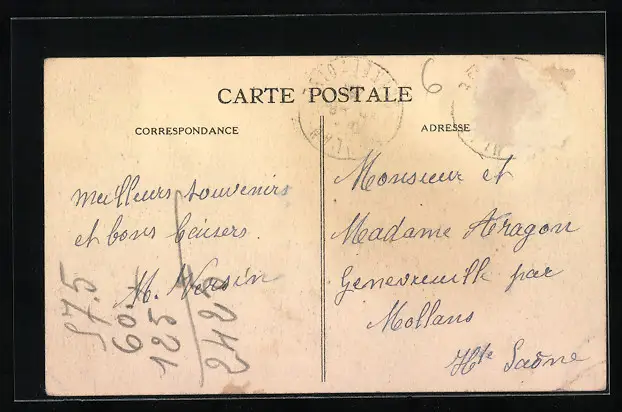 CARTE POSTALE
CORRESPONDANCE
ADRESSE
6
Meilleurs souvenirs
et bons baisers
M. Versin
Monsieur et
Madame Aragon
Genevreuille par
Mollans
Hte Saône
57.5
60.
125
242 5